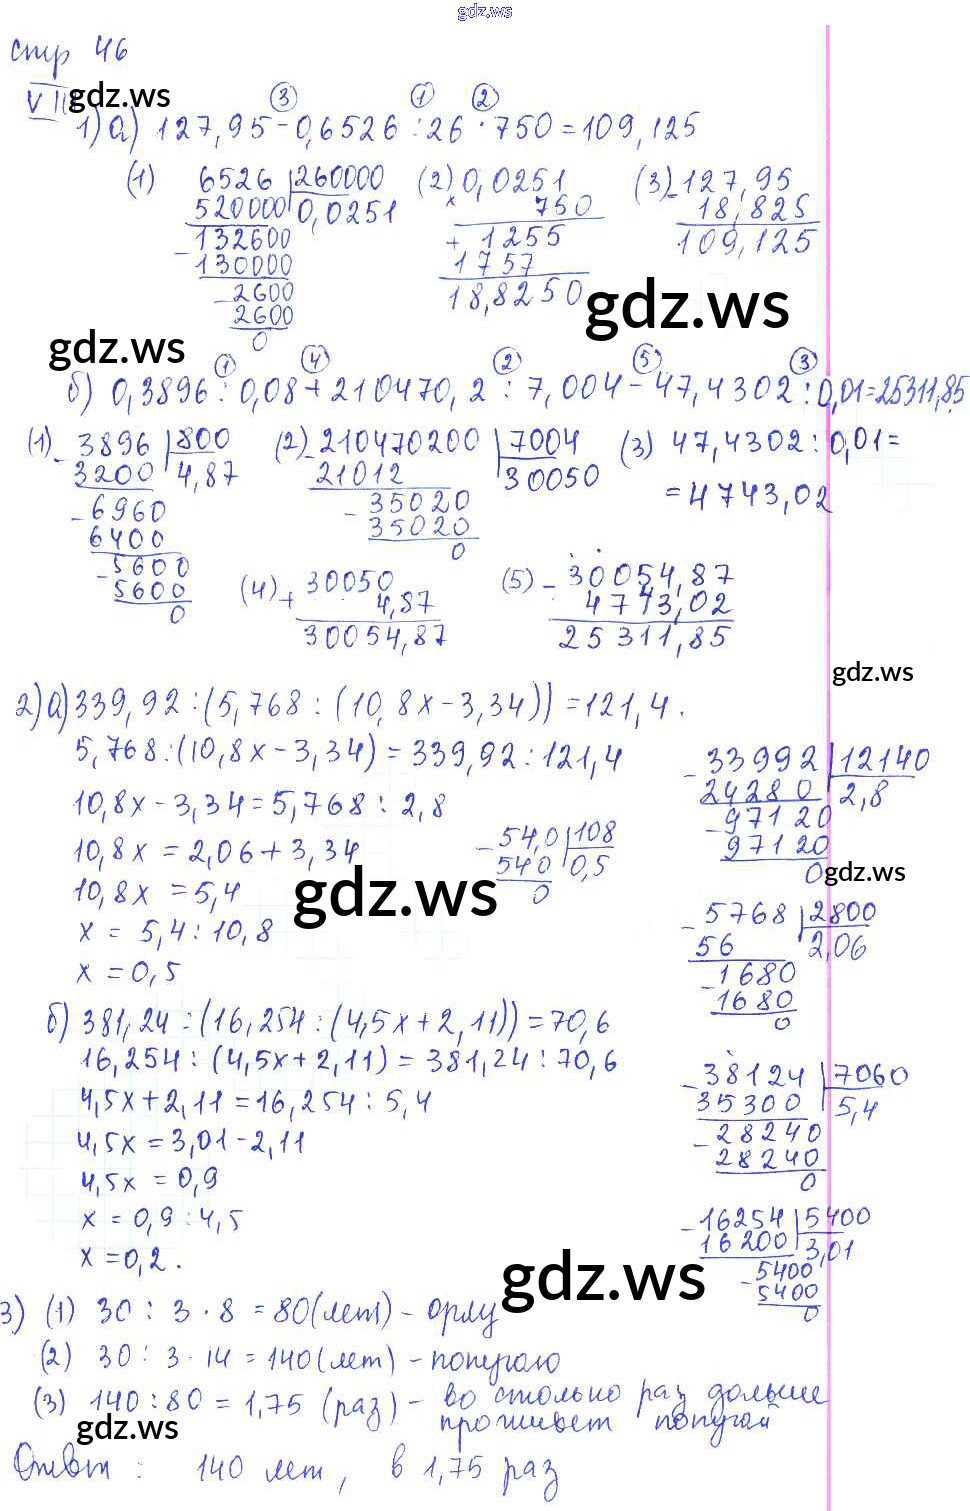 gdz.ws
стр 46
VII gdz.ws
③ ① ②
1) а) 127,95 - 0,6526 : 26 · 750 = 109,125
(1) 6526 260000 (2) 0,0251 (3) - 127,95
520000 0,0251 × 750 18,825
- 132600 + 1255 109,125
130000 1757
- 2600 18,8250 gdz.ws
2600
0
gdz.ws
① ④ ② ⑤ ③
б) 0,3896 : 0,08 + 210470,2 : 7,004 - 47,4302 : 0,01 = 25311,85
(1) - 3896 800 (2) - 210470200 7004 (3) 47,4302 : 0,01 =
3200 4,87 21012 30050 = 4743,02
- 6960 - 35020
6400 35020
- 5600 0
5600
0
(4) + 30050 (5) - 30054,87
4,87 4743,02
30054,87 25311,85
gdz.ws
2) а) 339,92 : (5,768 : (10,8x - 3,34)) = 121,4.
5,768 : (10,8x - 3,34) = 339,92 : 121,4 - 33992 12140
10,8x - 3,34 = 5,768 : 2,8 24280 2,8
10,8x = 2,06 + 3,34 - 54,0 108 - 97120
540 0,5 97120
10,8x = 5,4 0 0 gdz.ws
gdz.ws
x = 5,4 : 10,8 - 5768 2800
x = 0,5 56 2,06
- 1680
1680
0
б) 381,24 : (16,254 : (4,5x + 2,11)) = 70,6
16,254 : (4,5x + 2,11) = 381,24 : 70,6 - 38124 7060
4,5x + 2,11 = 16,254 : 5,4 35300 5,4
4,5x = 3,01 - 2,11 - 28240
4,5x = 0,9 28240
0
x = 0,9 : 4,5 - 16254 5400
x = 0,2. 16200 3,01
gdz.ws - 5400
5400
0
3) (1) 30 : 3 · 8 = 80 (лет) - орлу
(2) 30 : 3 · 14 = 140 (лет) - попугаю
(3) 140 : 80 = 1,75 (раз) - во столько раз дольше
gdz.ws проживет попугай
Ответ : 140 лет, в 1,75 раз